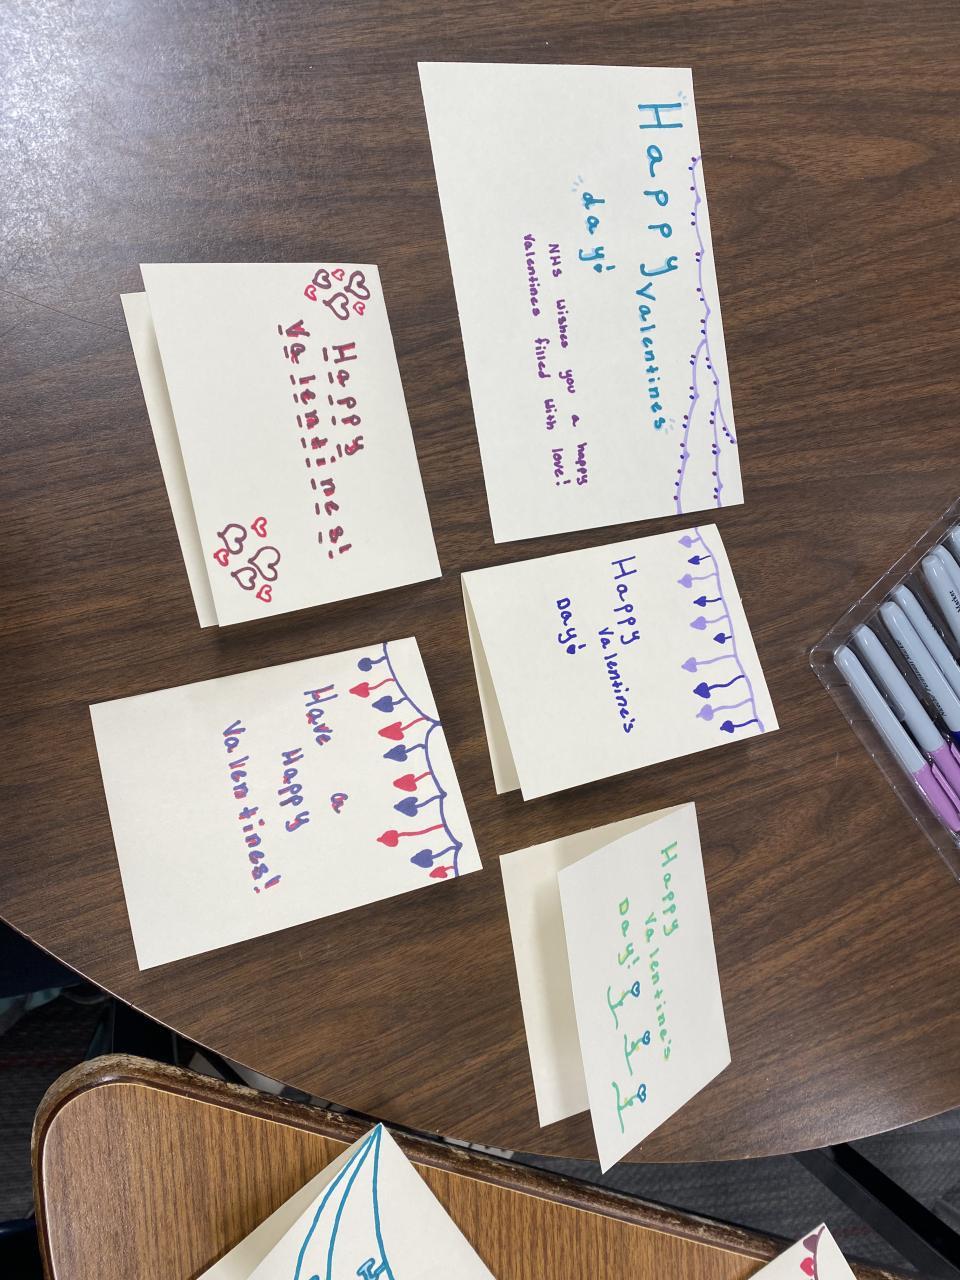 Happy Valentines
day!
NHS wishes you a happy
Valentines filled with love!
Happy
Valentines!
Happy
Valentine's
Day!
Have a
Happy
Valentines!
Happy
Valentine's
Day!